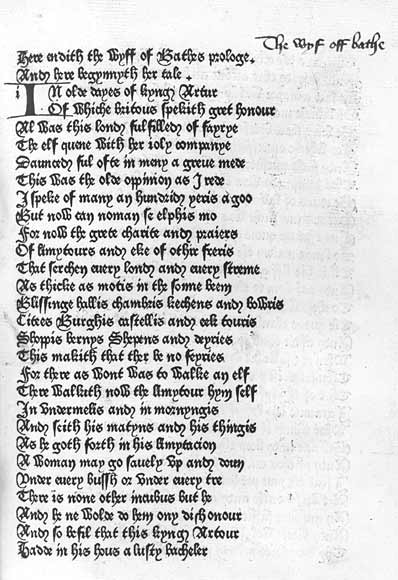 The wyf off bathe
Here endith the wyff of Bathes prologe.
And here begynnyth her tale.
IN olde dayes of kyng Artur
Of whiche britous spekith gret honour
Al was this lond fulfilled of fayrye
The elf quene with her ioly companye
Daunced ful ofte in meny a greue mede
This was the olde oppinion as J rede
J speke of many an hundrid yeris a goo
But now can noman se elphis mo
For now the grete charite and praiers
Of lymytours and eke of othir freris
That serchen euery lond and euery streme
As thicke as motis in the sonne beem
Blissinge hallis chambris kechens and bowris
Citees Burghis castellis and eek touris
Shoppis bernys Shepens and deyries
This makith that ther be no feyries
For there as wont was to walke an elf
There walketh now the lymytour hym self
In vndermelis and in mornyngis
And seith his matyns and his thingis
As he goth forth in his lymytacion
A woman may go sauely vp and doun
Vnder euery bussh or vnder euery tre
There is none other incubus but he
And he ne wolde do hem ony dishonour
And so befil that this kyng Artour
Hadde in his hous a lusty bacheler